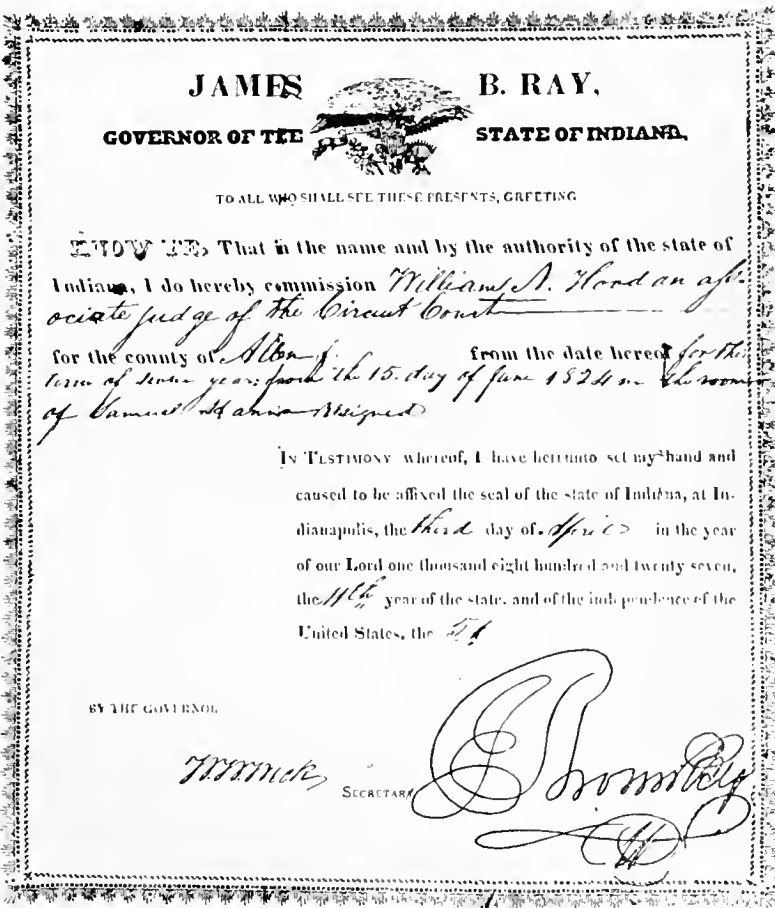 JAMES B. RAY,
GOVERNOR OF THE STATE OF INDIANA,
TO ALL WHO SHALL SEE THESE PRESENTS, GREETING
KNOW YE, That in the name and by the authority of the state of
Indiana, I do hereby commission William N. Hood an ass-
ociate judge of the Circuit Court
for the county of Allen from the date hereof for the
term of seven years from the 15. day of June 1824 in the room
of Samuel Hanna Resigned
IN TESTIMONY whereof, I have hereunto set my hand and
caused to be affixed the seal of the state of Indiana, at In-
dianapolis, the third day of April in the year
of our Lord one thousand eight hundred and twenty seven,
the 11th year of the state, and of the independence of the
United States, the 51
BY THE GOVERNOR
W. W. Wick, SECRETARY